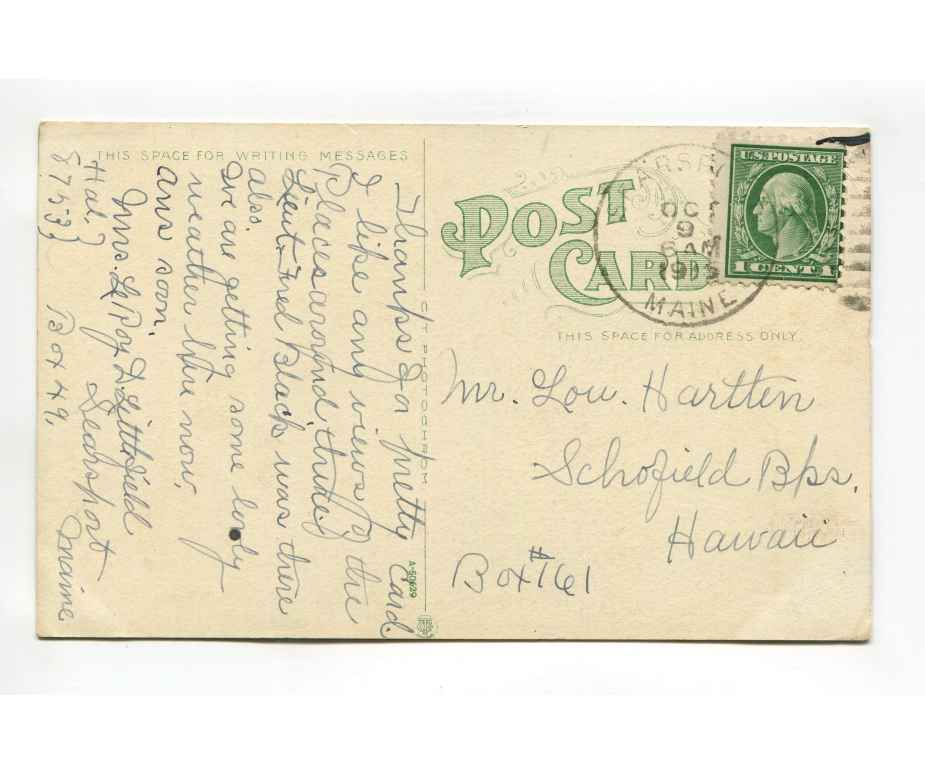 THIS SPACE FOR WRITING MESSAGES
Thanks for a pretty card.
I like any views of the
places around there,
Lieut. Fred Black was there
also.
We are getting some lovely
weather here now,
ans soon.
Mrs. LeRoy D. Littlefield
Searsport
Maine
Box 49,
Hal.
C.T. PHOTOCHROM
A-50629
POST
CARD
THIS SPACE FOR ADDRESS ONLY.
OCT
9
6 AM
MAINE
U.S. POSTAGE
1 CENT 1
Mr. Lou. Hartten
Schofield Bks.
Hawaii
Box #161